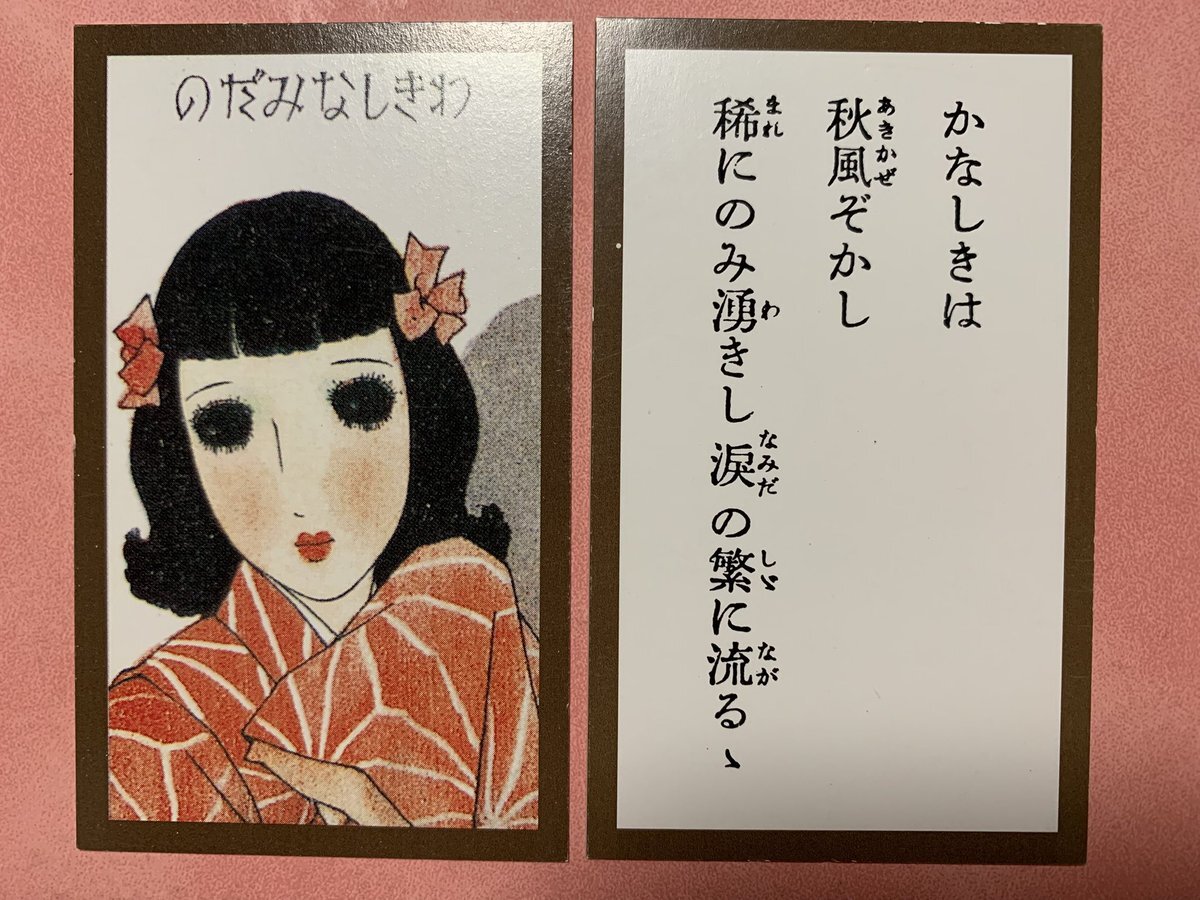 わきしなみだの
かなしきは
あきかぜ
秋風ぞかし
まれ わ なみだ しゞ なが
稀にのみ湧きし涙の繁に流るゝ